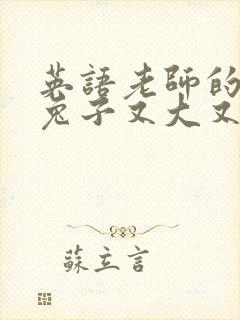 英語老師的
兔子又大又
蘇立言